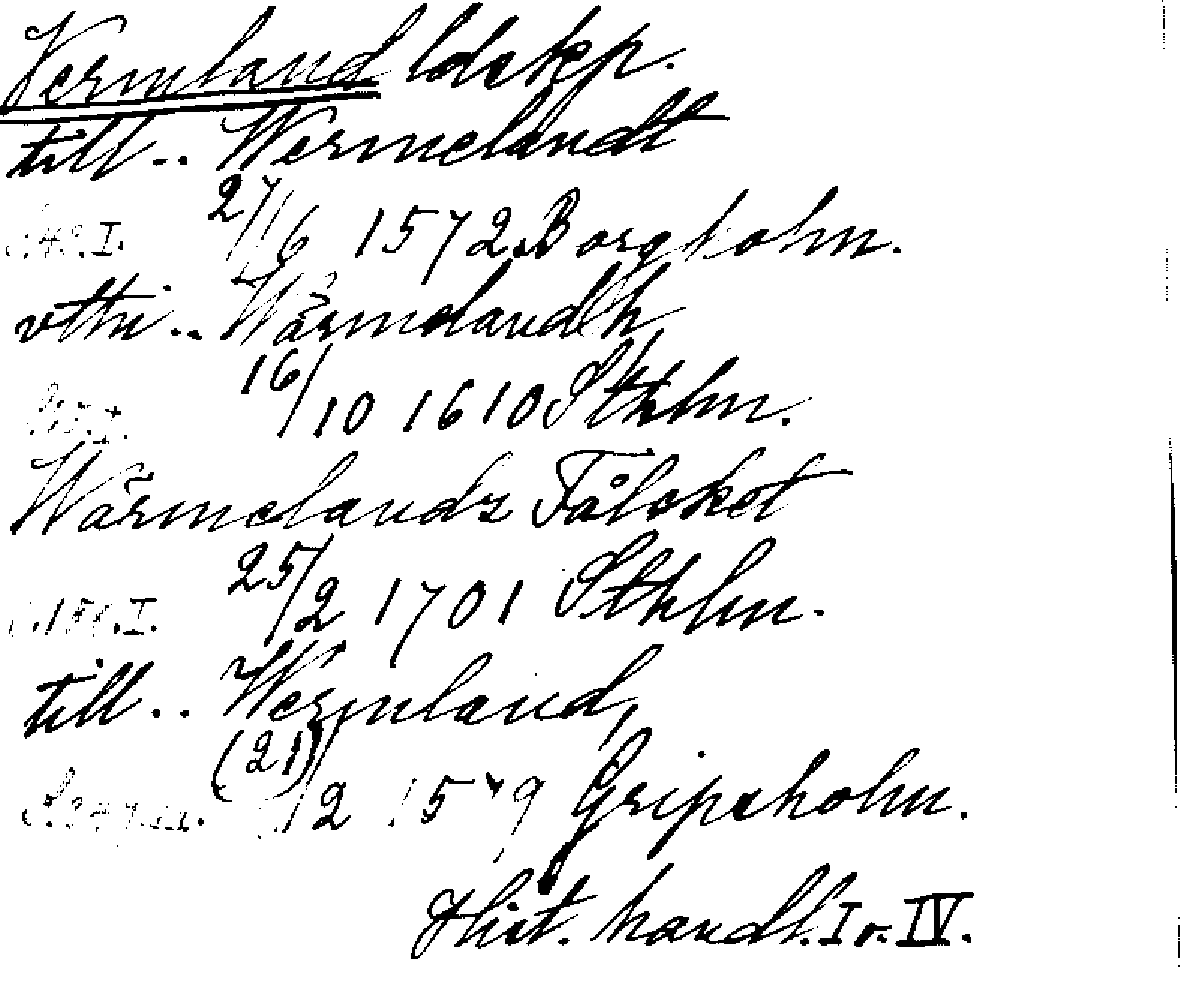 Vermland ldskp.
till.. Wermelandt
27/6 1572 Borgholm.
vthi.. Wärmelandh,
16/10 1610 Sthlm.
Wärmelandz Fålcket
25/2 1701 Sthlm.
till.. Wermland,
(21)/2 1579 Gripsholm.
Hist. handl. I o. IV.